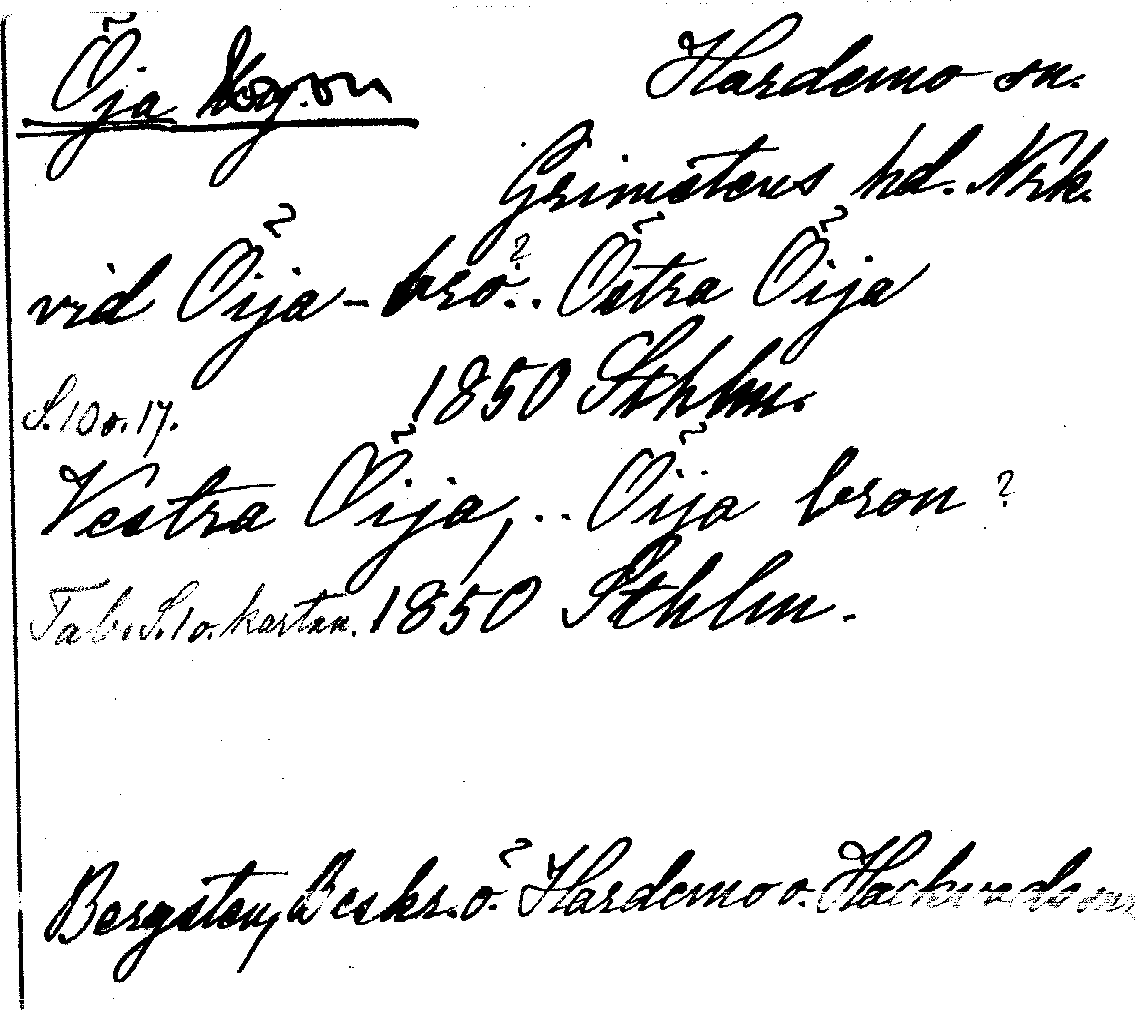 Öja by. on Hardemo sn.
Grimstens hd. Nrk.
vid Öija-bro.. Östra Öija
S. 10 o. 17. 1850 Sthlm.
Vestra Öija, .. Öija bron ?
Tab. S. 10. kartan. 1850 Sthlm.
Bergsten, Beskr. ö. Hardemo o. Hackvads snr